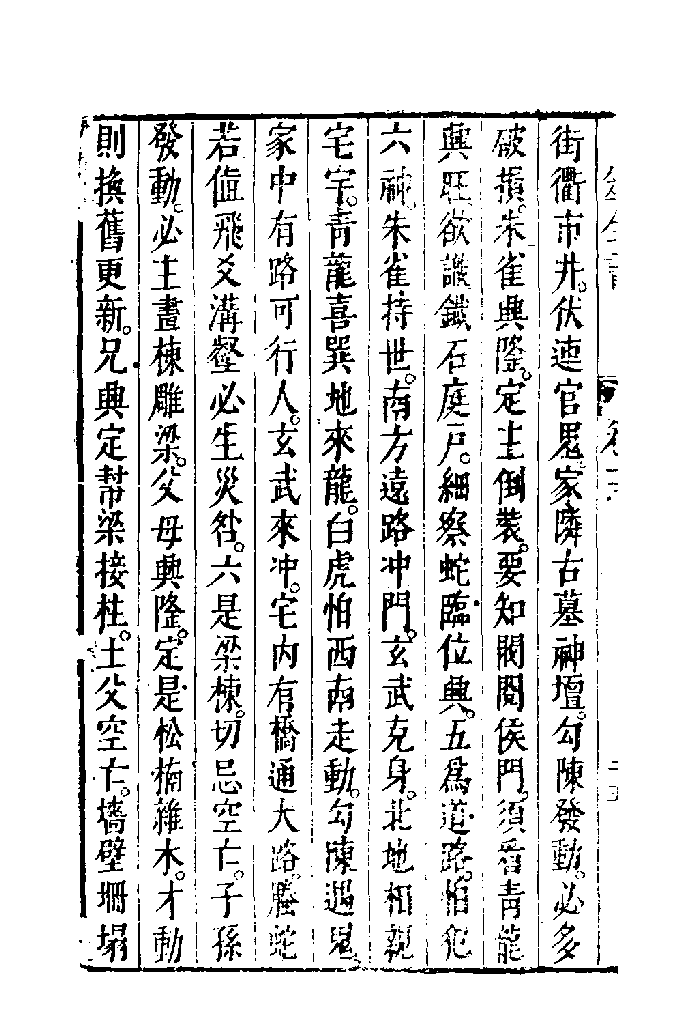 街衢市井。伏連官鬼家隣古墓神壇。勾陳發動。必多
破損。朱雀興隆。定主倒裝。要知閥閱侯門。須看青龍
興旺欲識鐵石庭戸。細察蛇臨位興。五為道路。怕犯
六神。朱雀持世。南方遠路冲門。玄武克身。北地相親
宅宇。青龍喜巽地來龍。白虎怕西南走動。勾陳遇鬼。
家中有路可行人。玄武來冲。宅内有橋通大路。螣蛇
若值飛爻溝壑必生災咎。六是梁棟。切忌空亡。子孫
發動。必主畫棟雕梁。父母興隆。定是松楠雜木。才動
則換舊更新。兄興定幇梁接柱。土父空亡。墻壁坍塌